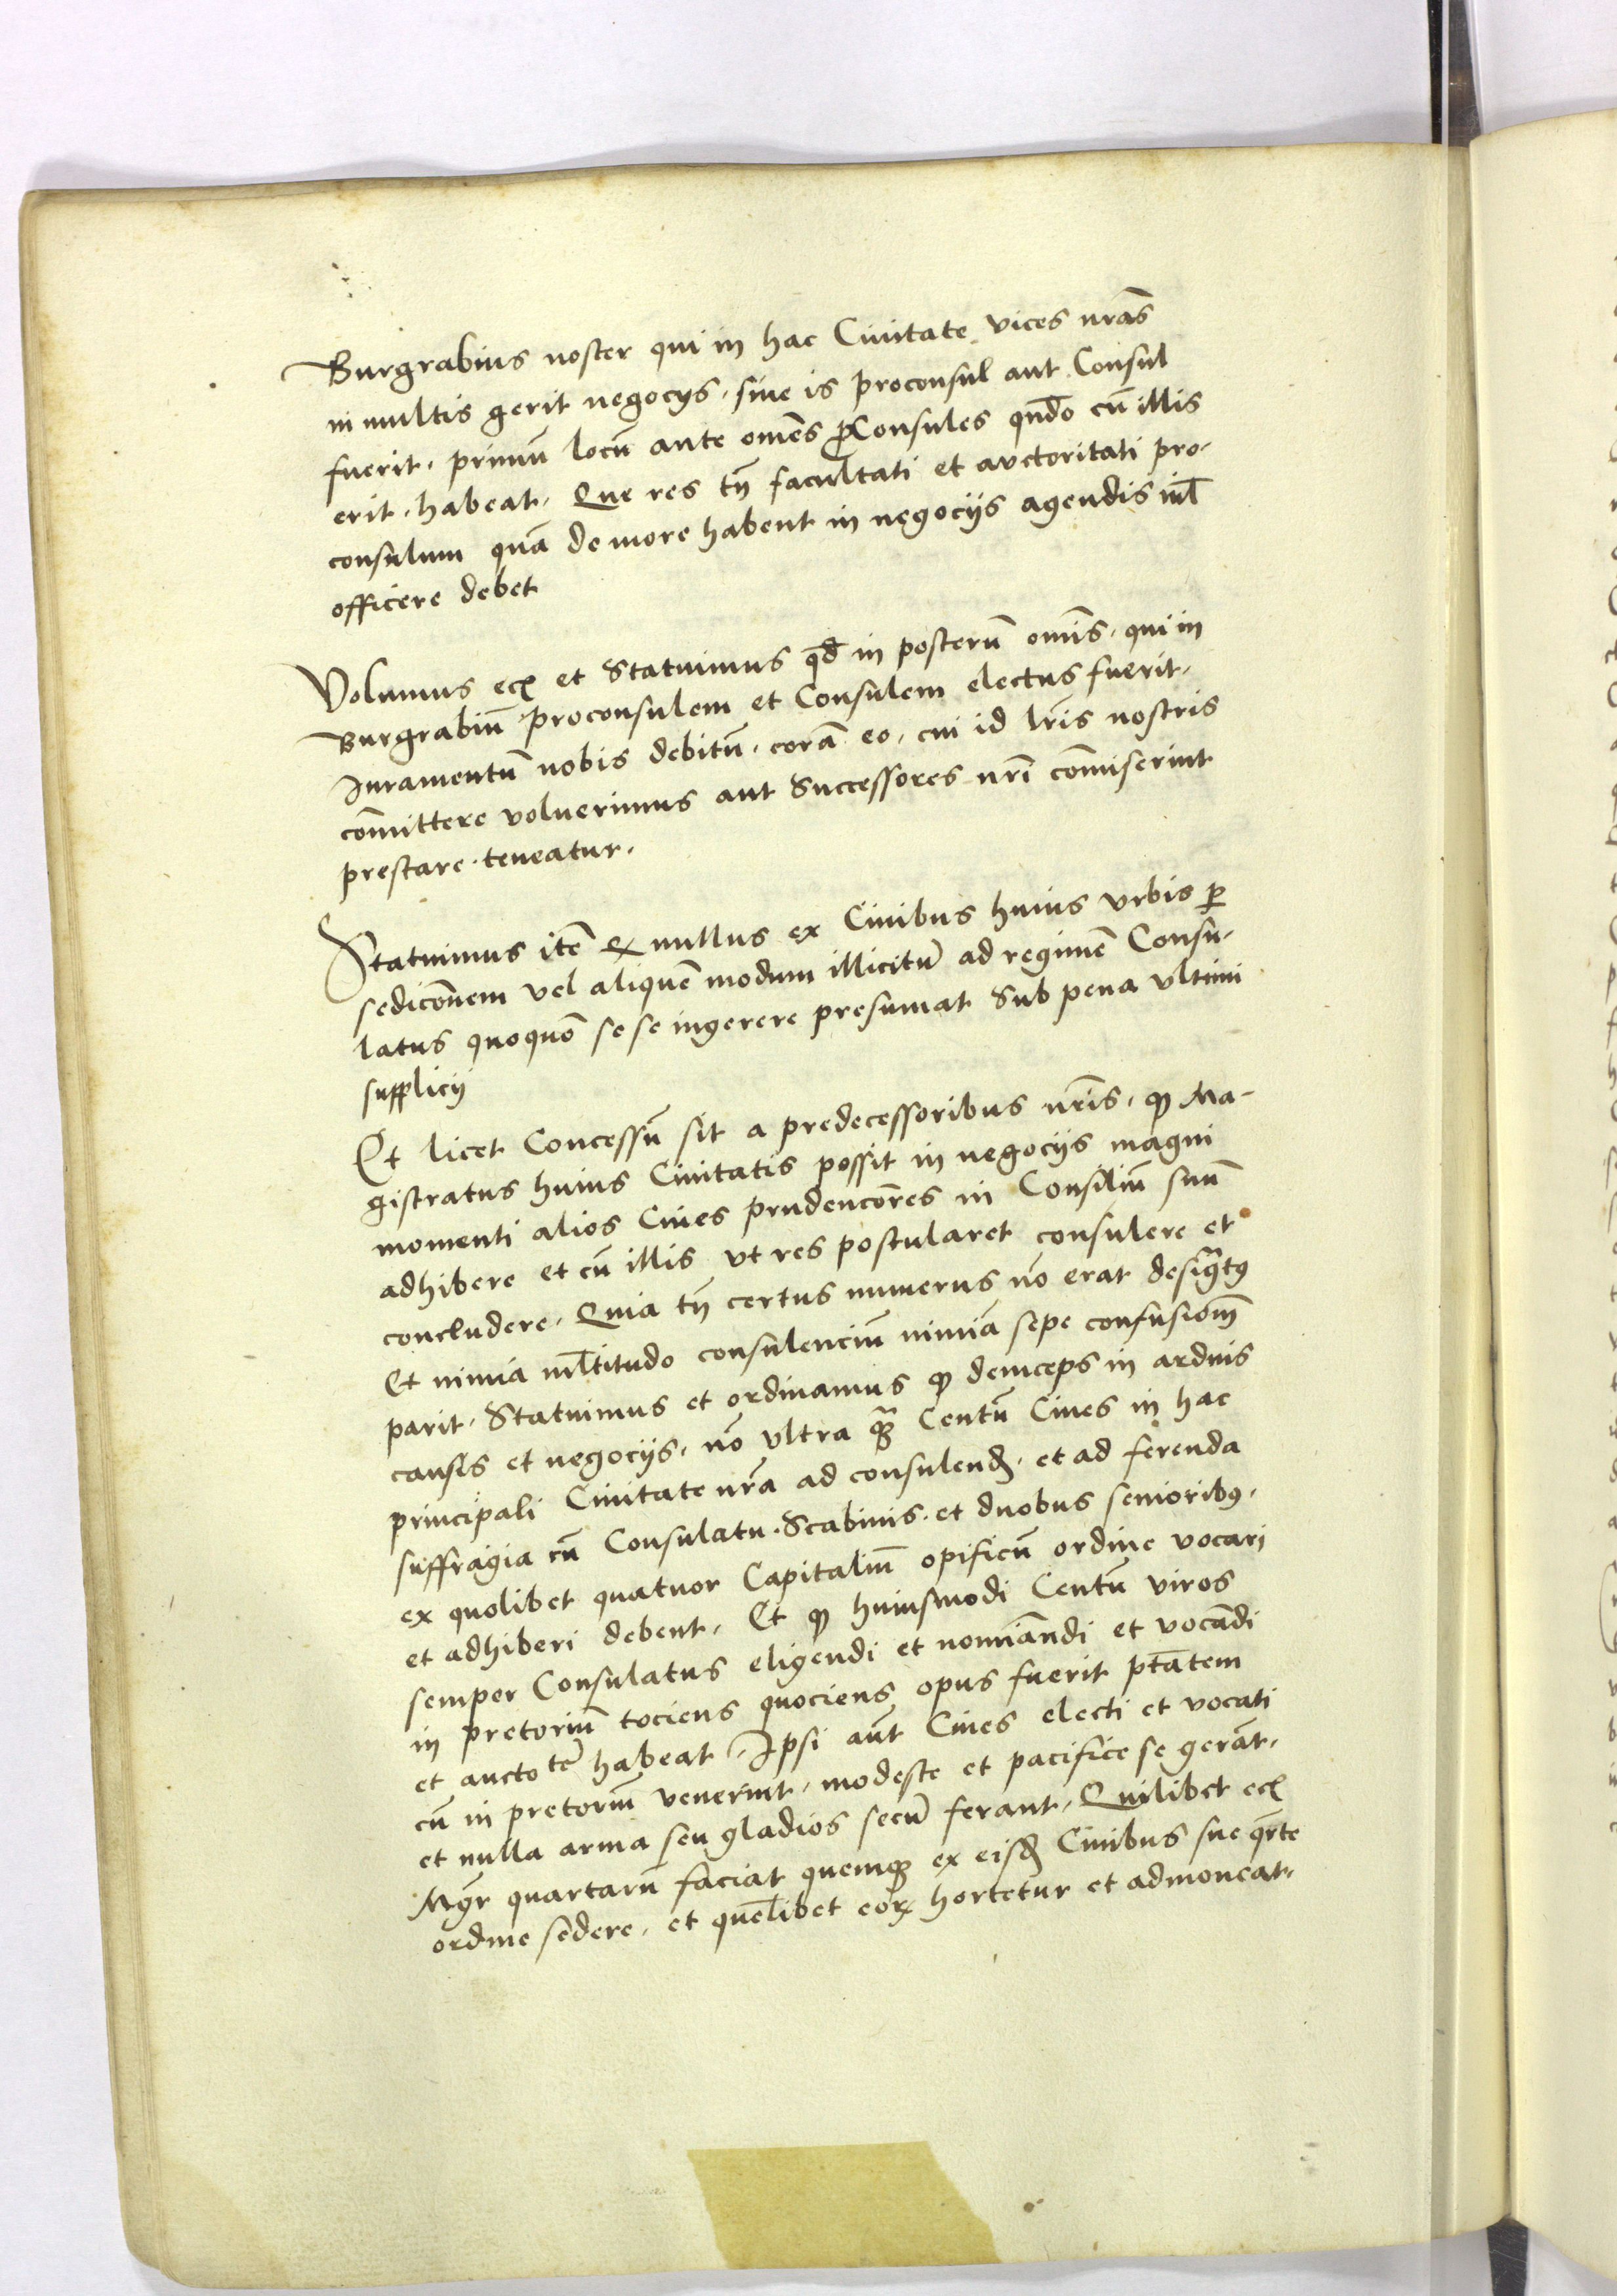 Burgrabius noster qui in hac Ciuitate vices nr̃as
in multis gerit negocys, siue is proconsul aut Consul
fuerit, primũ locũ ante om̃es ꝓConsules qñdo cũ illis
erit, habeat, Que res tñ facultati et auctoritati pro-
consulum quã de more habent in negocijs agendis nil̃
officere debet
Volumus ecꝫ et Statuimus qđ in posterũ om̃is, qui in
Burgrabiũ proconsulem et Consulem electus fuerit,
Iuramentũ nobis debitũ, corã eo, cui id lr̃is nostris
com̃ittere voluerimus aut Successores nr̃i com̃iserint
prestare teneatur.
Statuimus itẽ ꝙ nullus ex Ciuibus huius vrbis ꝑ
sedicõnem vel aliquẽ modum illicitũ ad regimẽ Consu-
latus quoquõ se se ingerere presumat Sub pena vltimi
supplicij
Et licet Concessũ sit a predecessoribus nr̃is, ꝙ Ma-
gistratus huius Ciuitatis possit in negocijs magni
momenti alios Ciues prudencõres in Consiliũ suũ
adhibere et cũ illis vt res postularet consulere et
concludere, Quia tñ certus numerus nõ erat desig̃tꝰ
Et nimia ml̃titudo consulenciũ nimiã sepe confusiom̃
parit, Statuimus et ordinamus ꝙ deinceps in arduis
causis et negocijs, nõ vltra ꝙ̃ Centũ Ciues in hac
principali Ciuitate nr̃a ad consulendꝫ, et ad ferenda
suffragia cũ Consulatu, Scabinis, et duobus senioribꝰ,
ex quolibet quatuor Capitaliũ opificũ ordine vocari
et adhiberi debent, Et ꝙ huiusmodi Centũ viros
semper Consulatus eligendi et nomiãndi et vocãdi
in pretoriũ tociens quociens opus fuerit ptãtem
et aucto tẽ habeat, Ipsi aũt Ciues electi et vocati
cũ in pretoriũ venerint, modeste et pacifice se gerãt,
et nulla arma seu gladios secũ ferant, Quilibet ecꝫ
Mgr̃ quartarũ faciat quemqꝫ ex eisdꝫ Ciuibus sue qr̃te
ordine sedere, et quẽlibet eoꝝ hortetur et admoneat,